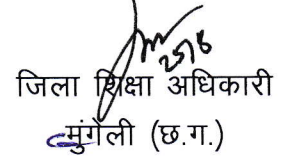 जिला शिक्षा अधिकारी
मुंगेली (छ.ग.)